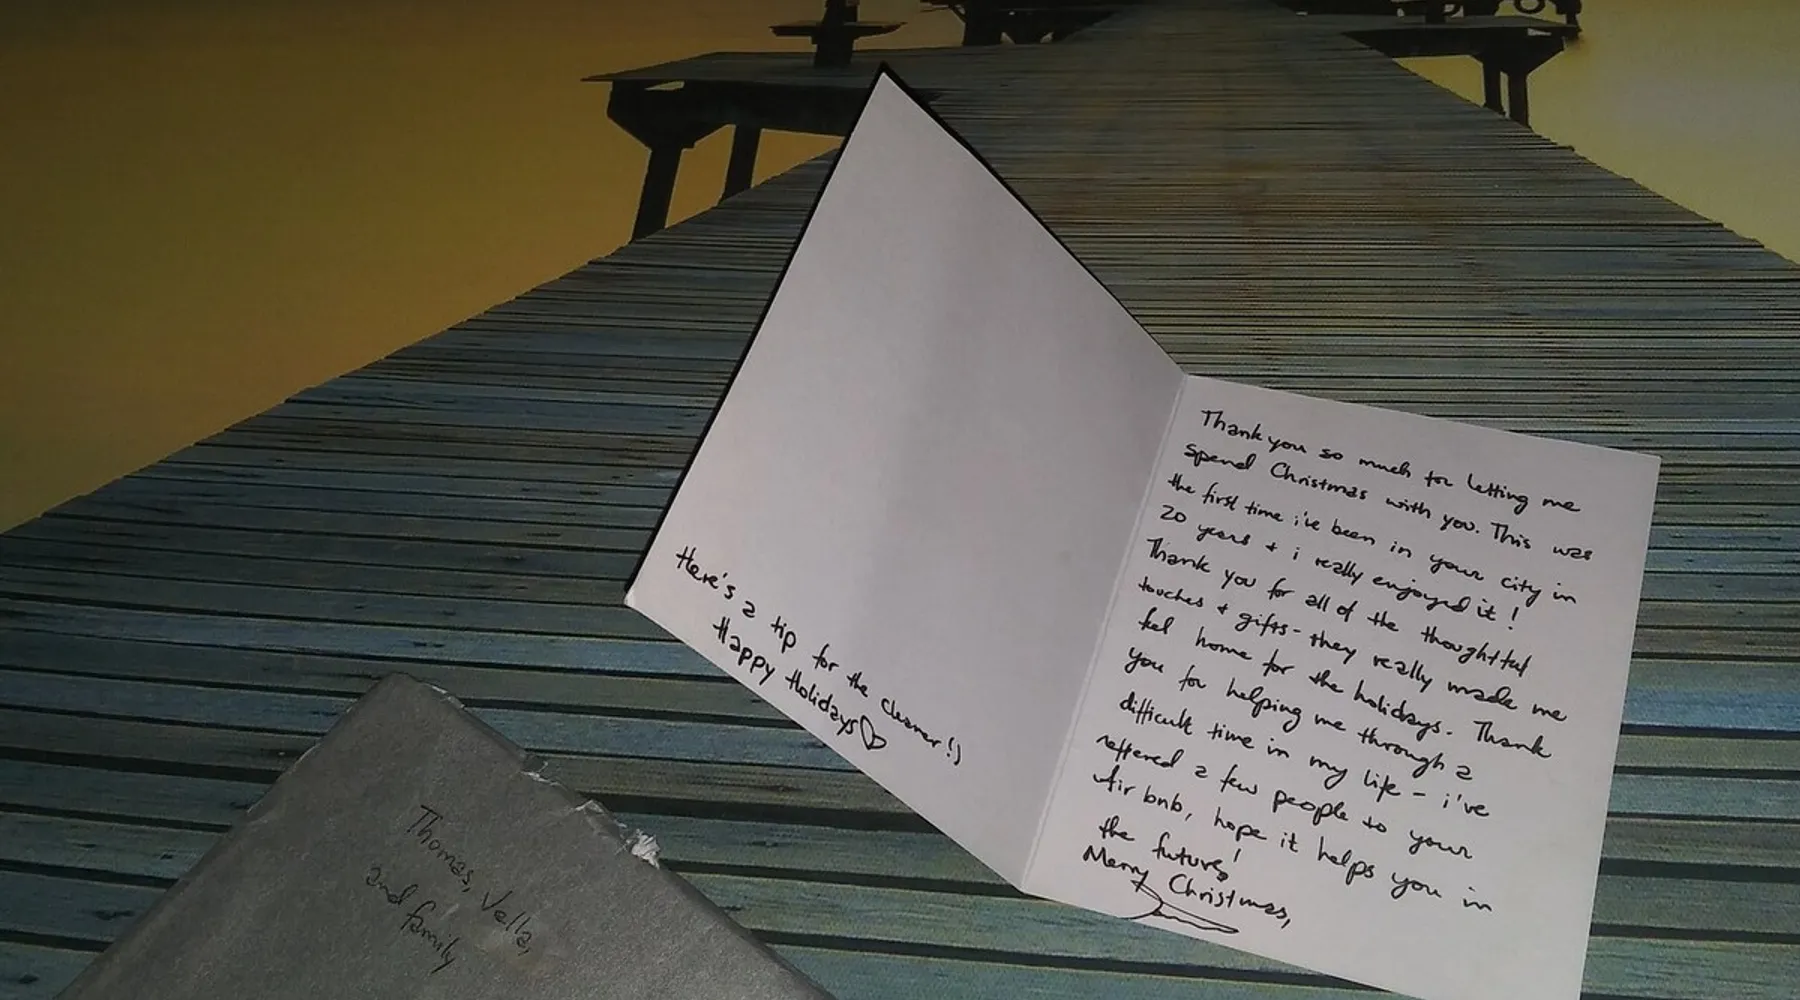 Here's a tip for the cleaner!)
Happy Holidays♡
Thank you so much for letting me
spend Christmas with you. This was
the first time i've been in your city in
20 years + i really enjoyed it!
Thank you for all of the thoughtful
touches + gifts - they really made me
feel home for the holidays. Thank
you for helping me through a
difficult time in my life - i've
reffered a few people to your
Air bnb, hope it helps you in
the future!
Merry Christmas,
Thomas, Vella,
and family